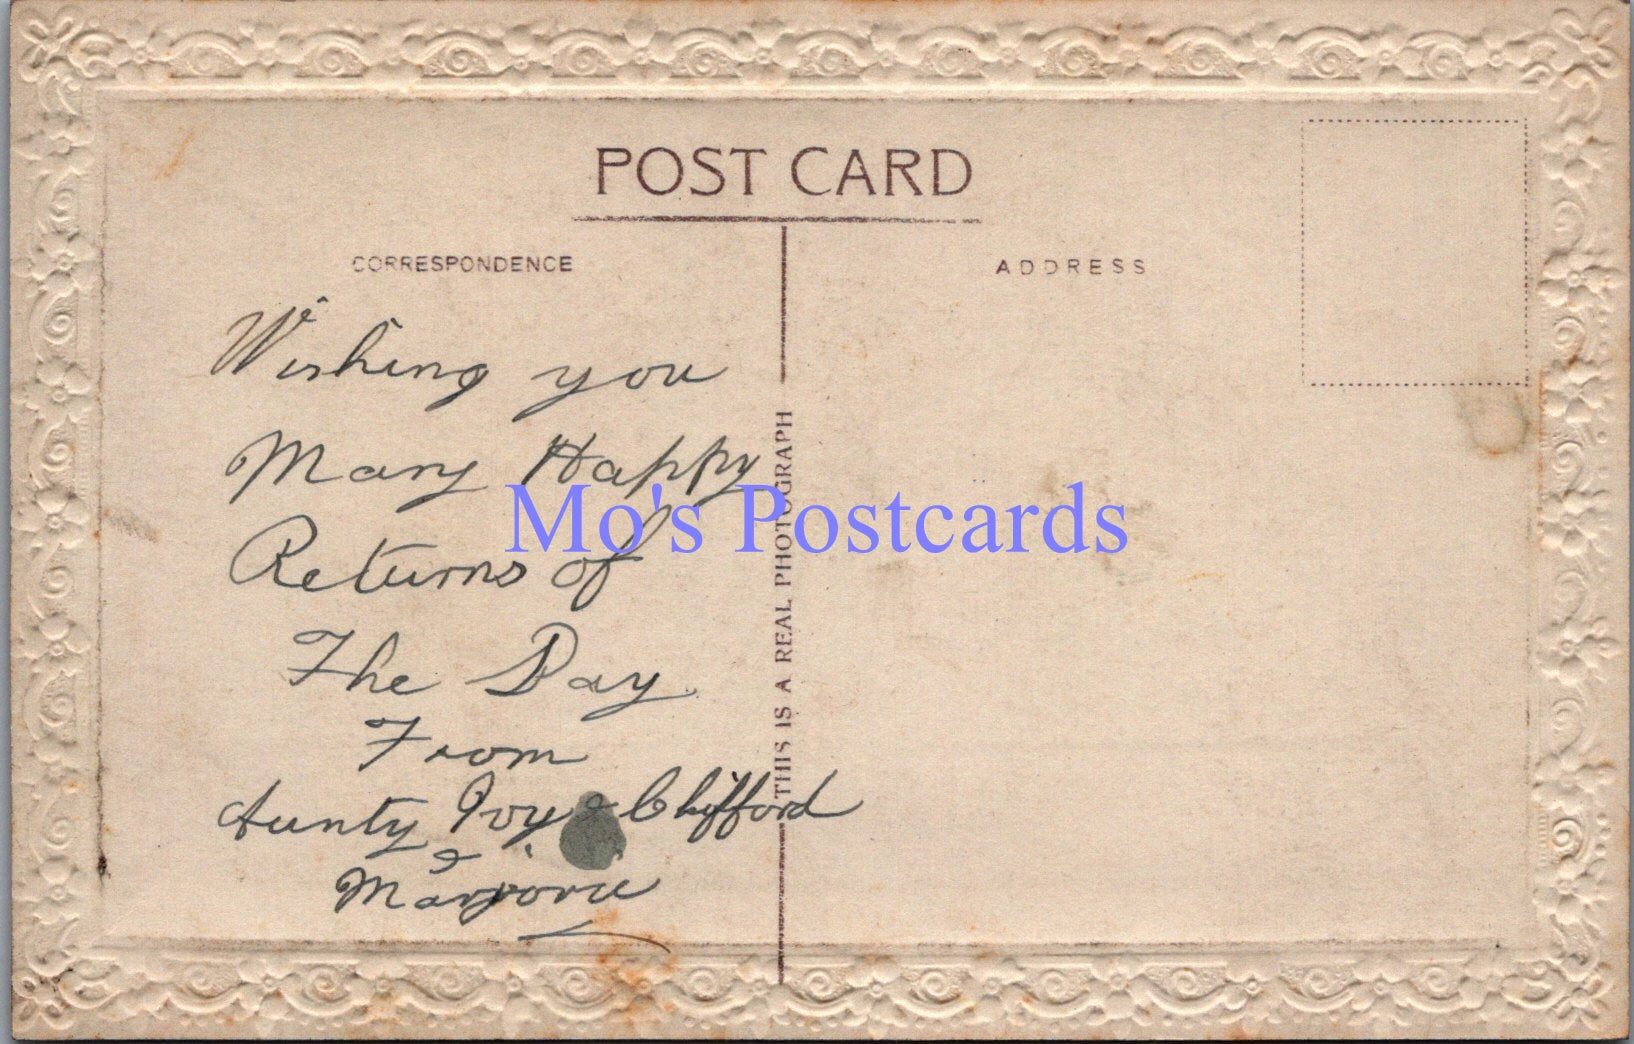 POST CARD
CORRESPONDENCE
ADDRESS
Wishing you
Many Happy
Returns of
The Day
From
Aunty Ivy & Clifford
& Marjorie
THIS IS A REAL PHOTOGRAPH
Mo's Postcards